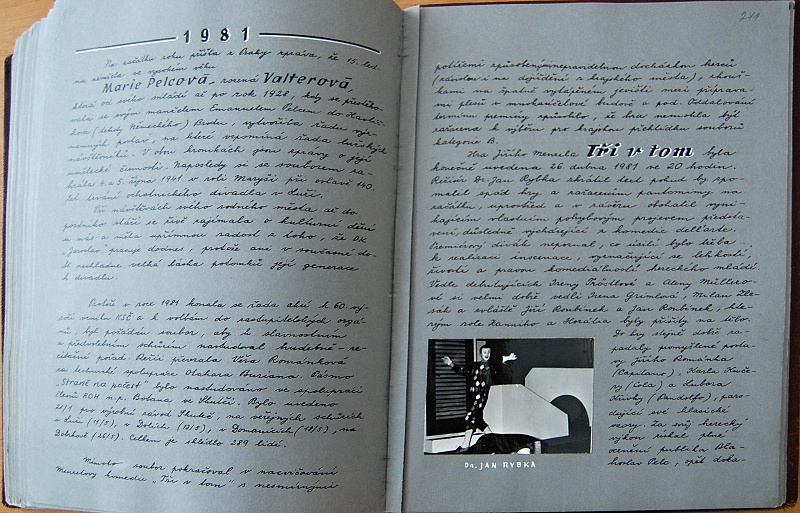 1981
Na začátku roku přišla z Prahy zpráva, že 15. led-
na zemřela ve vysokém věku
Marie Pelcová, rozená Valterová,
která od svého mládí až po rok 1928, kdy se přestěho-
vala se svým manželem Emanuelem Pelcem do Havlíč-
kova (tehdy Německého) Brodu, vytvořila řadu výz-
namných postav, na které vzpomíná řada lužských
návštěvníků. V obou kronikách jsou zprávy o její
umělecké činnosti. Naposledy si se souborem za-
hrála 4. a 5. října 1941 v roli Maryši při oslavě 140.
let trvání ochotnického divadla v Luži.
Při návštěvách svého rodného města až do
pozdního stáří se živě zajímala o kulturní dění
u nás a měla upřímnou radost z toho, že OK
"Jaroslav" pracuje dodnes, protože ani v současné do-
bě nechladne velká láska potomků její generace
k divadlu.
Protože v roce 1981 konala se řada akcí k 60. vý-
ročí vzniku KSČ a k volbám do zastupitelských orgá-
nů, byl požádán soubor, aby k slavnostním
a předvolebním schůzím nastudoval hudebně-re-
citační pořad. Režii převzala Věra Románková
za technické spolupráce Otakara Buriana. Pásmo
"Straně na počest" bylo nastudováno ve spolupráci
členů ROH n.p. Botana ve Skutči. Bylo uvedeno
21/1 pro výrobní závod Skuteč, na veřejných schůzích
v Luži (11/5), v Dolích (12/5), v Domanicích (18/5), na
Dobkově (26/5). Celkem je shlédlo 289 lidí.
Mimoto soubor pokračoval v nacvičování
Menzelovy komedie "Tři v tom" s nesmírnými
211
potížemi způsobenými nepravidelnou docházkou herců
(závislou i na dojíždění z krajského města), zkouš-
kami na špatně vytápěném jevišti mezi příprava-
mi plesů v mnohaúčelové budově a pod. Oddalování
termínu premiéry způsobilo, že hra nemohla být
zařazena k výběru pro krajskou přehlídku souborů
kategorie B.
Hra Jiřího Menzela Tři v tom byla
konečně uvedena 26. dubna 1981 ve 20 hodin.
Režisér Dr. Jan Rybka zkrátil text pokud by zpo-
maloval spád hry a zařazením pantomimy na
začátku, uprostřed a v závěru obohatil vyni-
kajícím vlastním pohybovým projevem předsta-
vení, důsledně vycházející z komedie dell'arte.
Premiérový divák nepoznal, co úsilí bylo třeba
k realizaci inscenace, vyznačující se lehkostí,
živostí a pravou komediálností hereckého mládí.
Vedle debutujících Ireny Tröstlové a Aleny Müllero-
vé si velmi dobře vedli Irena Grimlová, Milan Zle-
sák a zvláště Jiří Roubínek a Jan Roubínek, kte-
rým role Ranniho a Horátia byly přišity na tělo.
Do hry stejně dobře za-
padaly pomyšlené posta-
vy Jiřího Románka
(Capitano), Karla Kuče-
ry (Cola) a Lubora
Křivky (Pandolfo), paro-
dující své klasické
vzory. Za svůj herecký
výkon získal plné
ocenění publika Bla-
hoslav Pelc, opět doka-
DR. JAN RYBKA